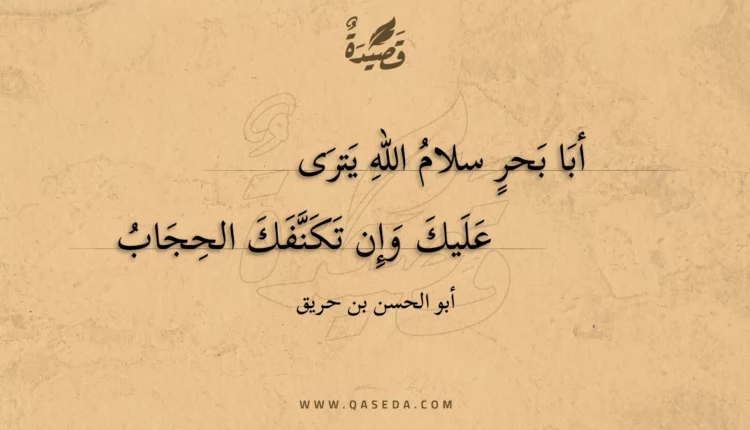 قَصِيْدَةٌ
أبَا بَحرٍ سلامُ اللهِ يَترَى
عَلَيكَ وَإِن تَكَنَّفَكَ الحِجَابُ
أبو الحسن بن حريق
WWW.QASEDA.COM